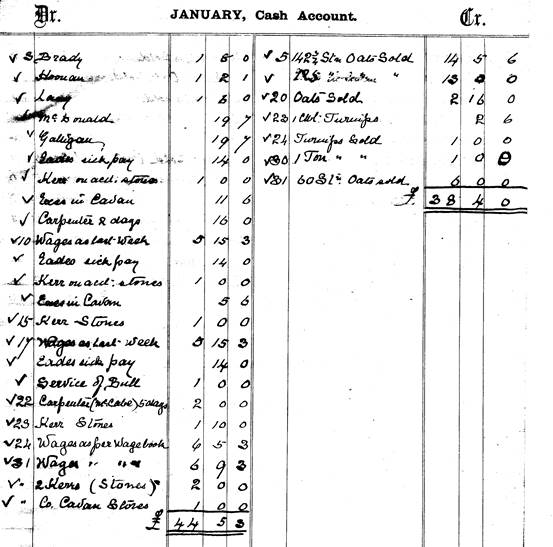 Dr. JANUARY, Cash Account. Cr.
✓ 3 Brady 1 8 0
✓ Noonan 1 2 1
✓ 1 8 0
✓ McDonald 19 7
✓ Galligan 19 7
✓ Eades sick pay 14 0
✓ Kerr on act: stones 1 0 0
✓ Exes in Cavan 11 6
✓ Carpenter 2 days 16 0
✓ 10 Wages as last week 5 15 3
✓ Eades sick pay 14 0
✓ Kerr on act: stones 1 0 0
✓ Exes in Cavan 5 6
✓ 15 Kerr Stones 1 0 0
✓ 17 Wages as last week 5 15 3
✓ Eades sick pay 14 0
✓ Service of Bull 1 0 0
✓ 22 Carpenter (McCabe) 5 days 2 0 0
✓ 23 Kerr Stones 1 10 0
✓ 24 Wages as per Wage book 6 5 3
✓ 31 Wages " " " 6 9 3
✓ " 2 Kerrs (Stones) 2 0 0
✓ " Co. Cavan Stores 1 0 0
£ 44 5 3
✓ 5 142¾ Stn Oats Sold 14 5 6
✓ " 13 0 0
✓ 20 Oats Sold 2 16 0
✓ 23 1 Cwt. Turnips 2 6
✓ 24 Turnips Sold 1 0 0
✓ 30 1 Ton " " 1 0 0
✓ 31 60 Stn Oats sold 6 0 0
£ 38 4 0